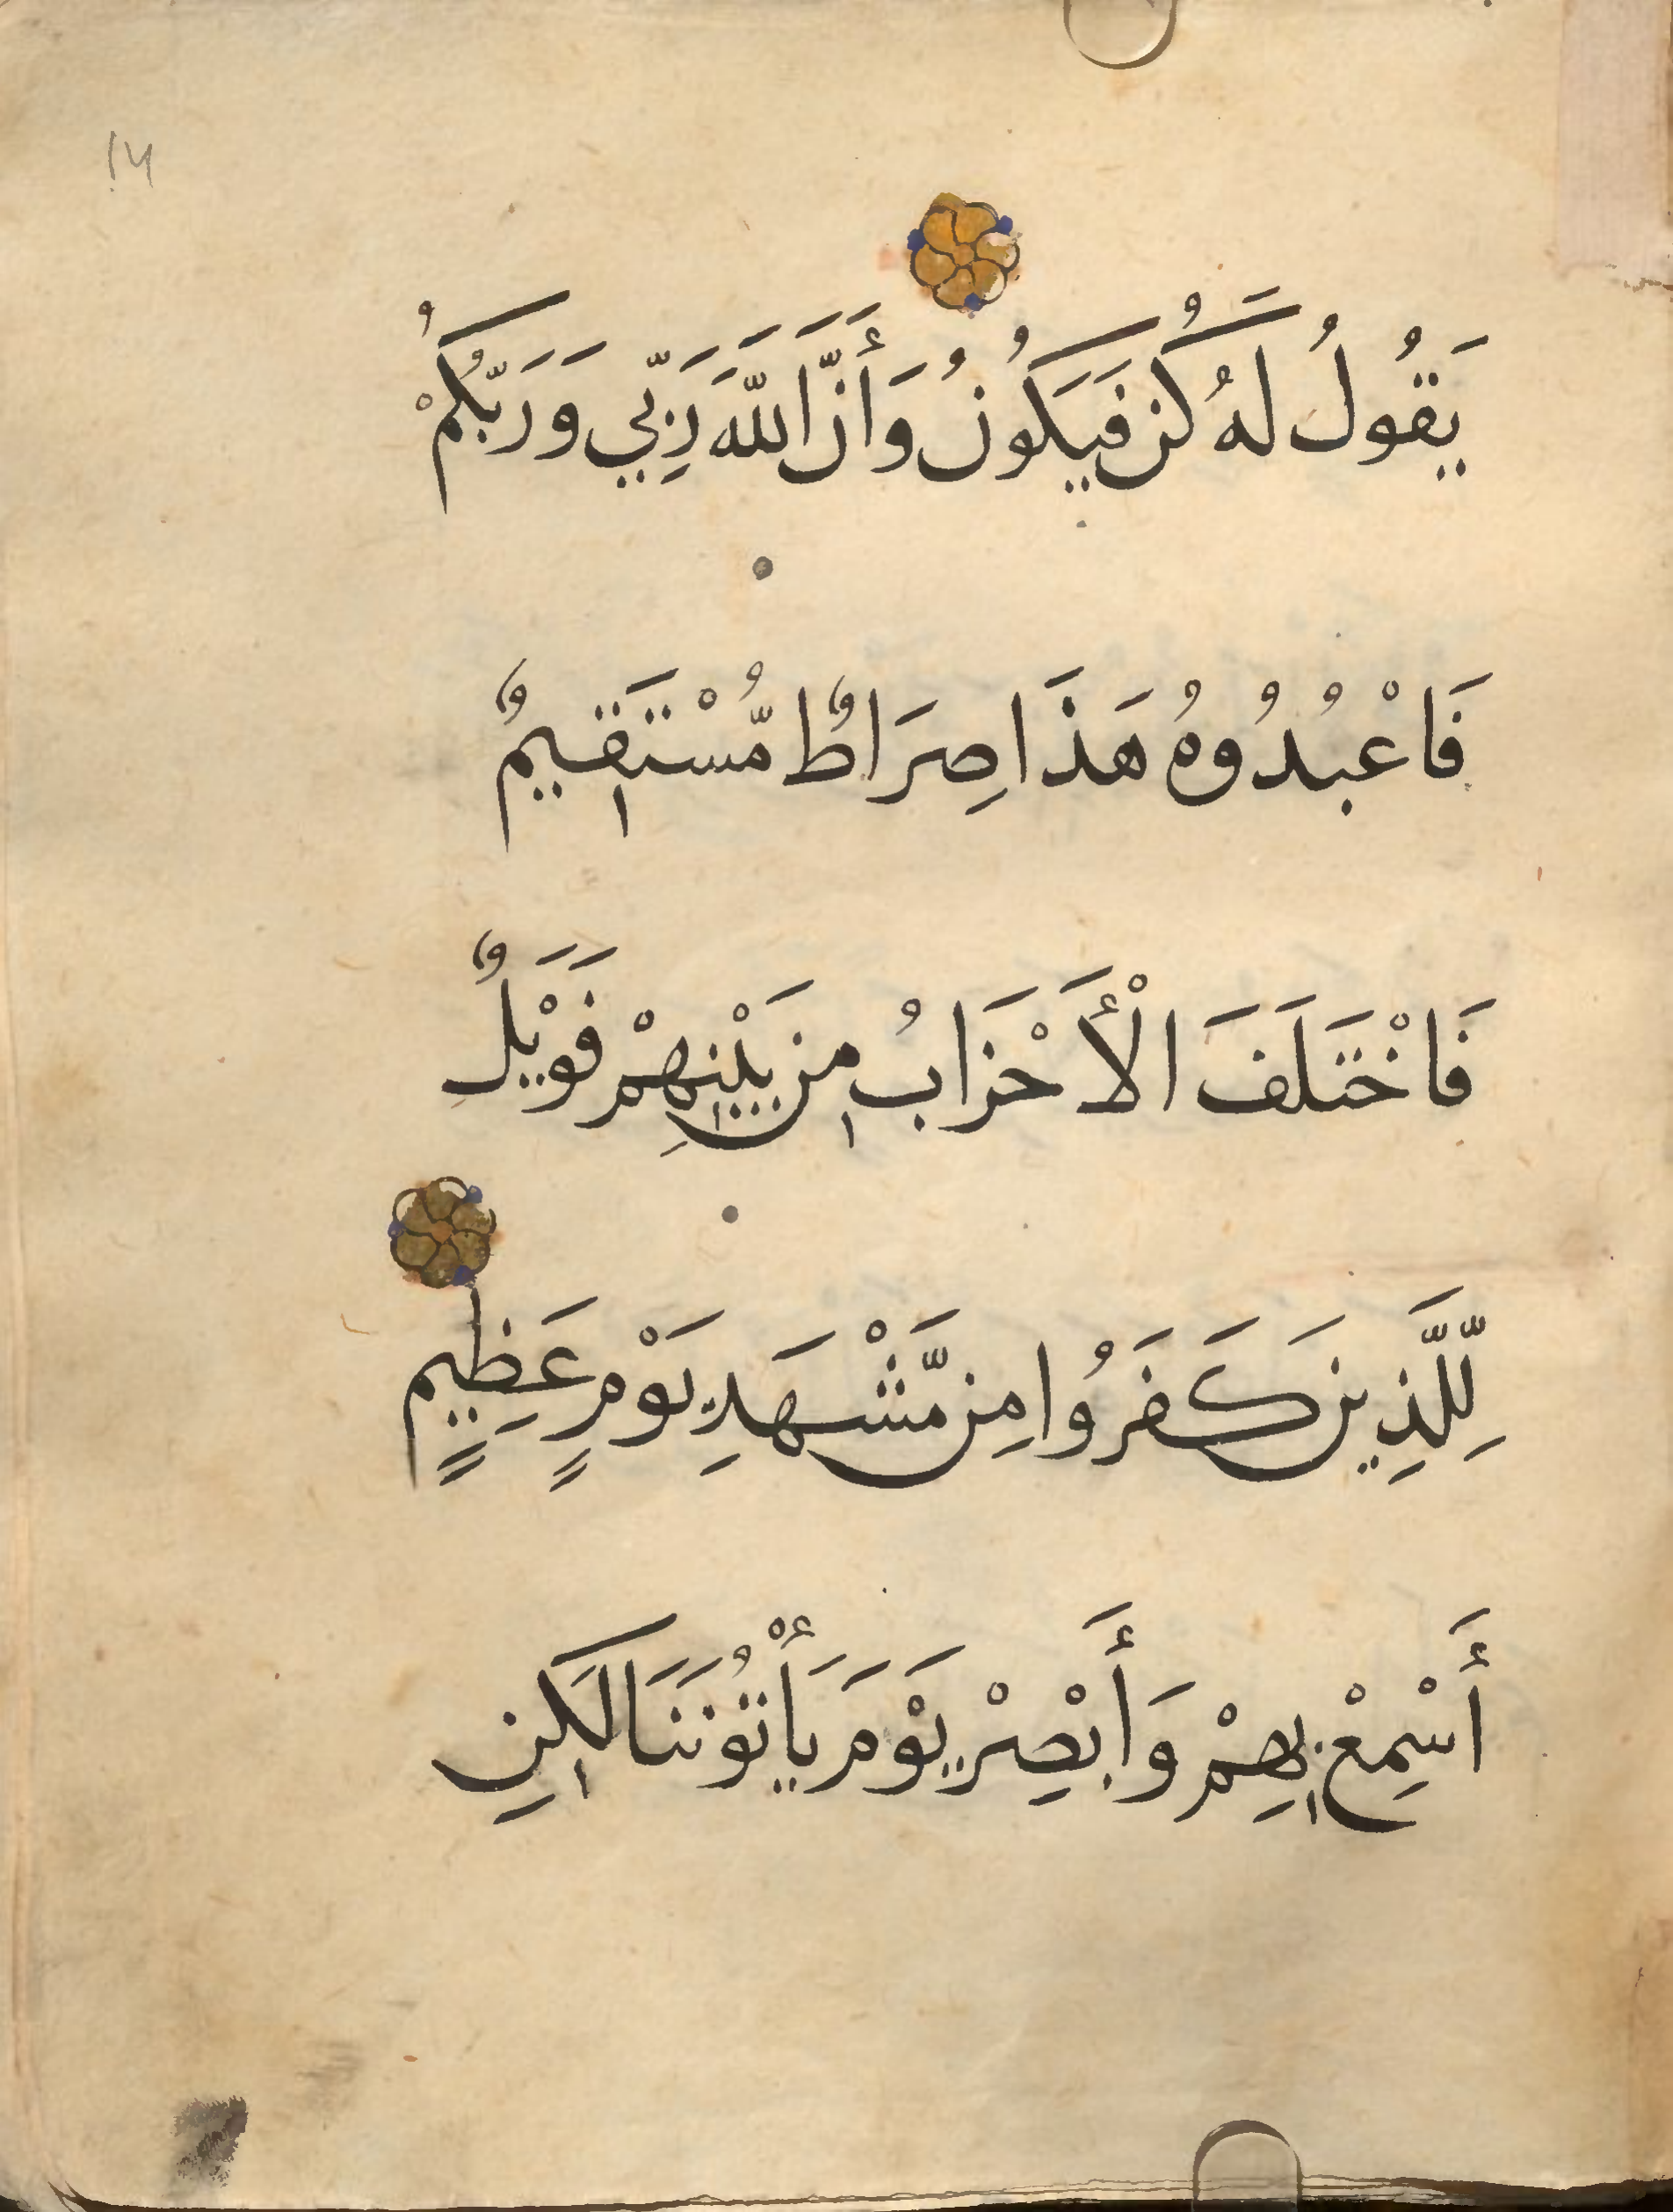 14
يَقُولُ لَهُ كُن فَيَكُونُ وَأَنَّ اللَّهَ رَبِّي وَرَبُّكُمْ
فَاعْبُدُوهُ هَذَا صِرَاطٌ مُّسْتَقِيمٌ
فَاخْتَلَفَ الْأَحْزَابُ مِن بَيْنِهِمْ فَوَيْلٌ
لِّلَّذِينَ كَفَرُوا مِن مَّشْهَدِ يَوْمٍ عَظِيمٍ
أَسْمِعْ بِهِمْ وَأَبْصِرْ يَوْمَ يَأْتُونَنَا لَكِنِ